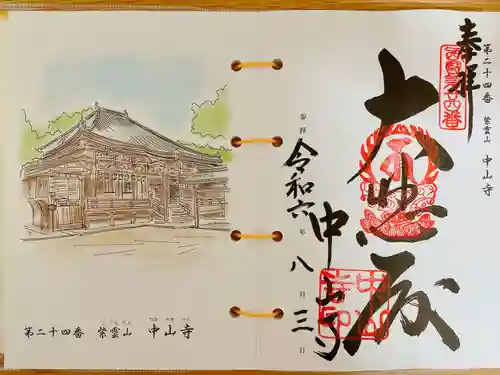 第二十四番 紫雲山 中山寺
奉拝
大悲殿
中山寺
参拝 令和六年八月三日
第二十四番 紫雲山 中山寺